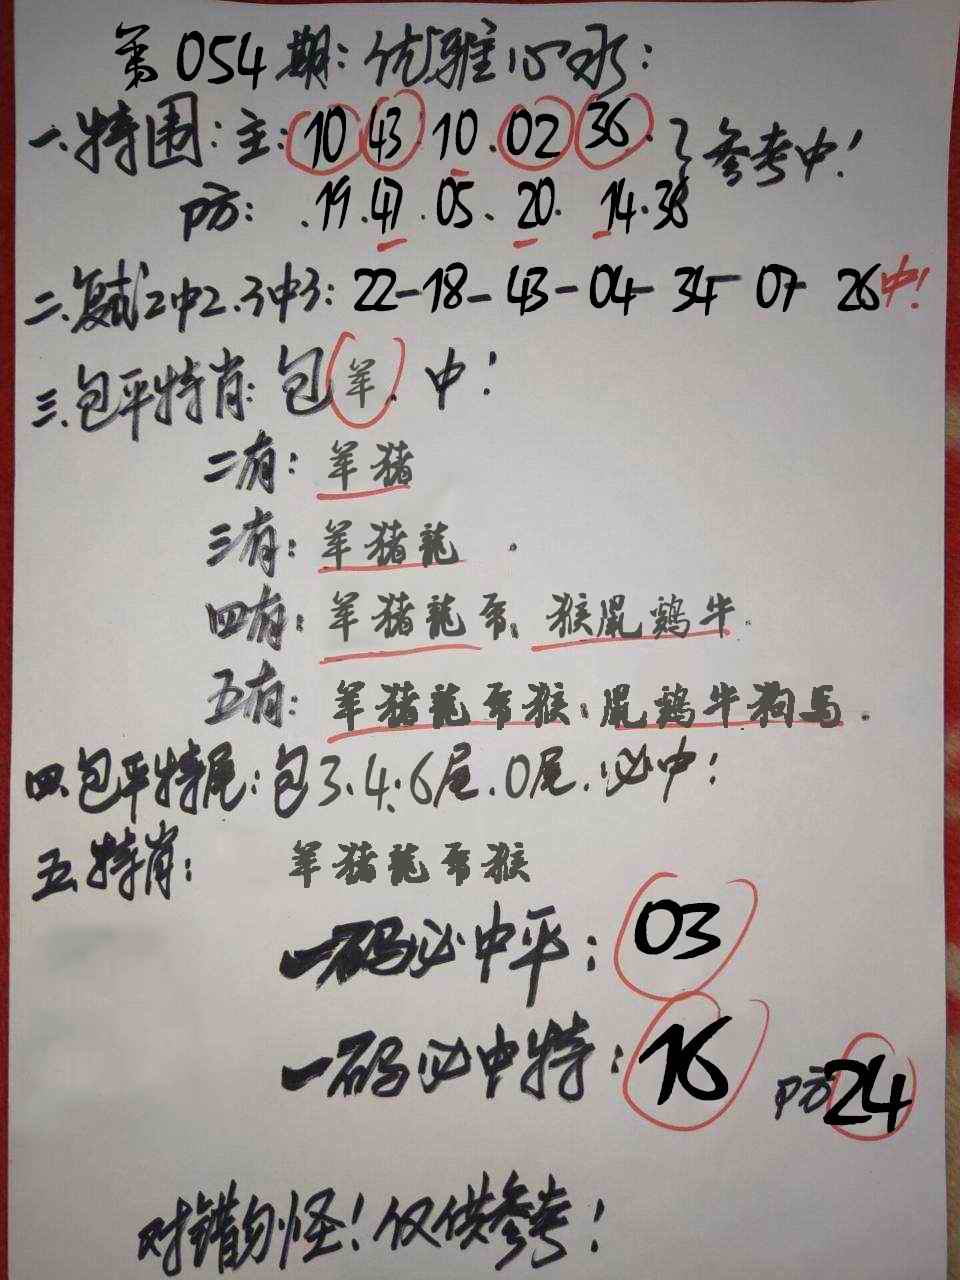 第054期:优雅心水:
一.特围:主:10.43.10.02.36.}参考中!
防:.19.47.05.20.14.38
二.复式2中2.3中3:22-18-43-04-34-07-26中!
三.包平特肖:包羊.中!
二有:羊猪
三有:羊猪龍.
四有:羊猪龍虎.猴鼠鷄牛.
五有:羊猪龍虎猴.鼠鷄牛狗马.
四.包平特尾:包3.4.6尾.0尾.必中!
五.特肖:羊猪龍虎猴
一码必中平:03
一码必中特:16 防24
对错勿怪!仅供参考!